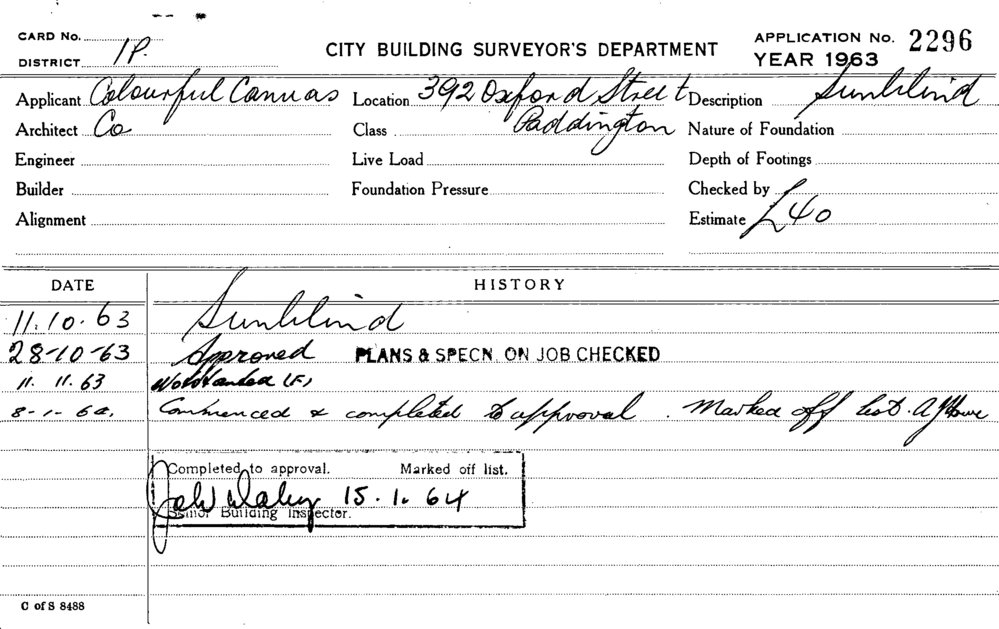 CARD No.
DISTRICT 1P.
CITY BUILDING SURVEYOR'S DEPARTMENT
APPLICATION No. 2296
YEAR 1963
Applicant Colourful Canvas Location 392 Oxford Street Description Sunblind
Architect Co Class Paddington Nature of Foundation
Engineer Live Load Depth of Footings
Builder Foundation Pressure Checked by
Alignment Estimate £40
DATE HISTORY
11.10.63 Sunblind
28-10-63 Approved PLANS & SPECN. ON JOB CHECKED
11. 11. 63 (F)
8-1-64. Commenced & completed to approval. Marked off list.
Completed to approval. Marked off list.
15.1.64
Senior Building Inspector.
C of S 8488